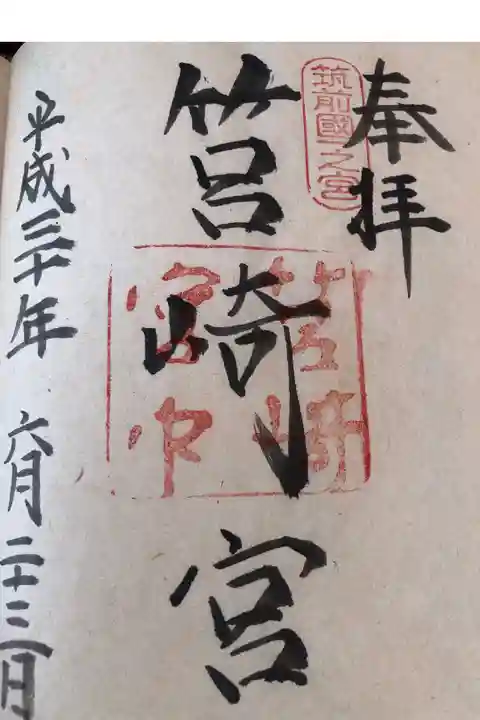 奉拝
筑前國一之宮
筥崎宮
筥崎宮印
平成三十年 六月 二十三日